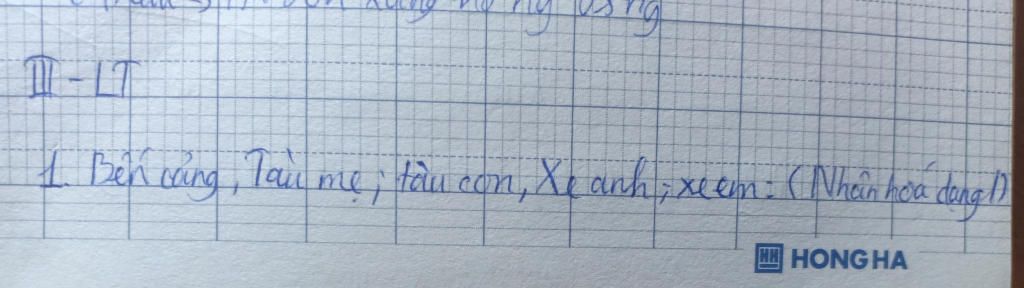 xưng hô
III - LT
1. Bến cảng, Tàu mẹ; tàu con, Xe anh; xe em: (Nhân hoá dạng 1)
HH HONG HA